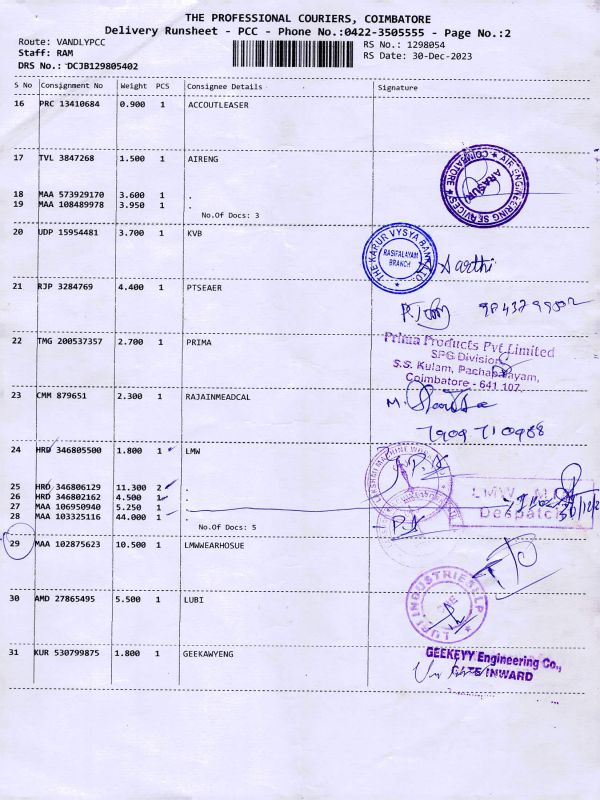 THE PROFESSIONAL COURIERS, COIMBATORE
Delivery Runsheet - PCC - Phone No.:0422-3505555 - Page No.:2
Route: VANDLYPCC
Staff: RAM
DRS No.: DCJB129805402
RS No.: 1298054
RS Date: 30-Dec-2023
S No Consignment No Weight PCS Consignee Details Signature
16 PRC 13410684 0.900 1 ACCOUTLEASER
17 TVL 3847268 1.500 1 AIRENG
AIR ENGINEERING SERVICES
COIMBATORE
ARASUR
18 MAA 573929170 3.600 1 .
19 MAA 108489978 3.950 1 .
No.Of Docs: 3
20 UDP 15954481 3.700 1 KVB
THE KARUR VYSYA BANK LTD.
RASIPALAYAM
BRANCH
Aarthi
21 RJP 3284769 4.400 1 PTSEAER
22 TMG 200537357 2.700 1 PRIMA
Prima Products Pvt Limited
SPG Division
S.S. Kulam, Pachapalayam,
Coimbatore - 641 107.
23 CMM 879651 2.300 1 RAJAINMEADCAL
7909710988
24 HRD 346805500 1.800 1 LMW
25 HRD 346806129 11.300 2 .
26 HRD 346802162 4.500 1 .
27 MAA 106950940 5.250 1 .
28 MAA 103325116 44.000 1 .
No.Of Docs: 5
LMW
Despatch
29 MAA 102875623 10.500 1 LMWWEARHOSUE
30 AMD 27865495 5.500 1 LUBI
LUBI INDUSTRIES LLP
31 KUR 530799875 1.800 1 GEEKAWYENG
GEEKEYY Engineering Co.,
GATE INWARD